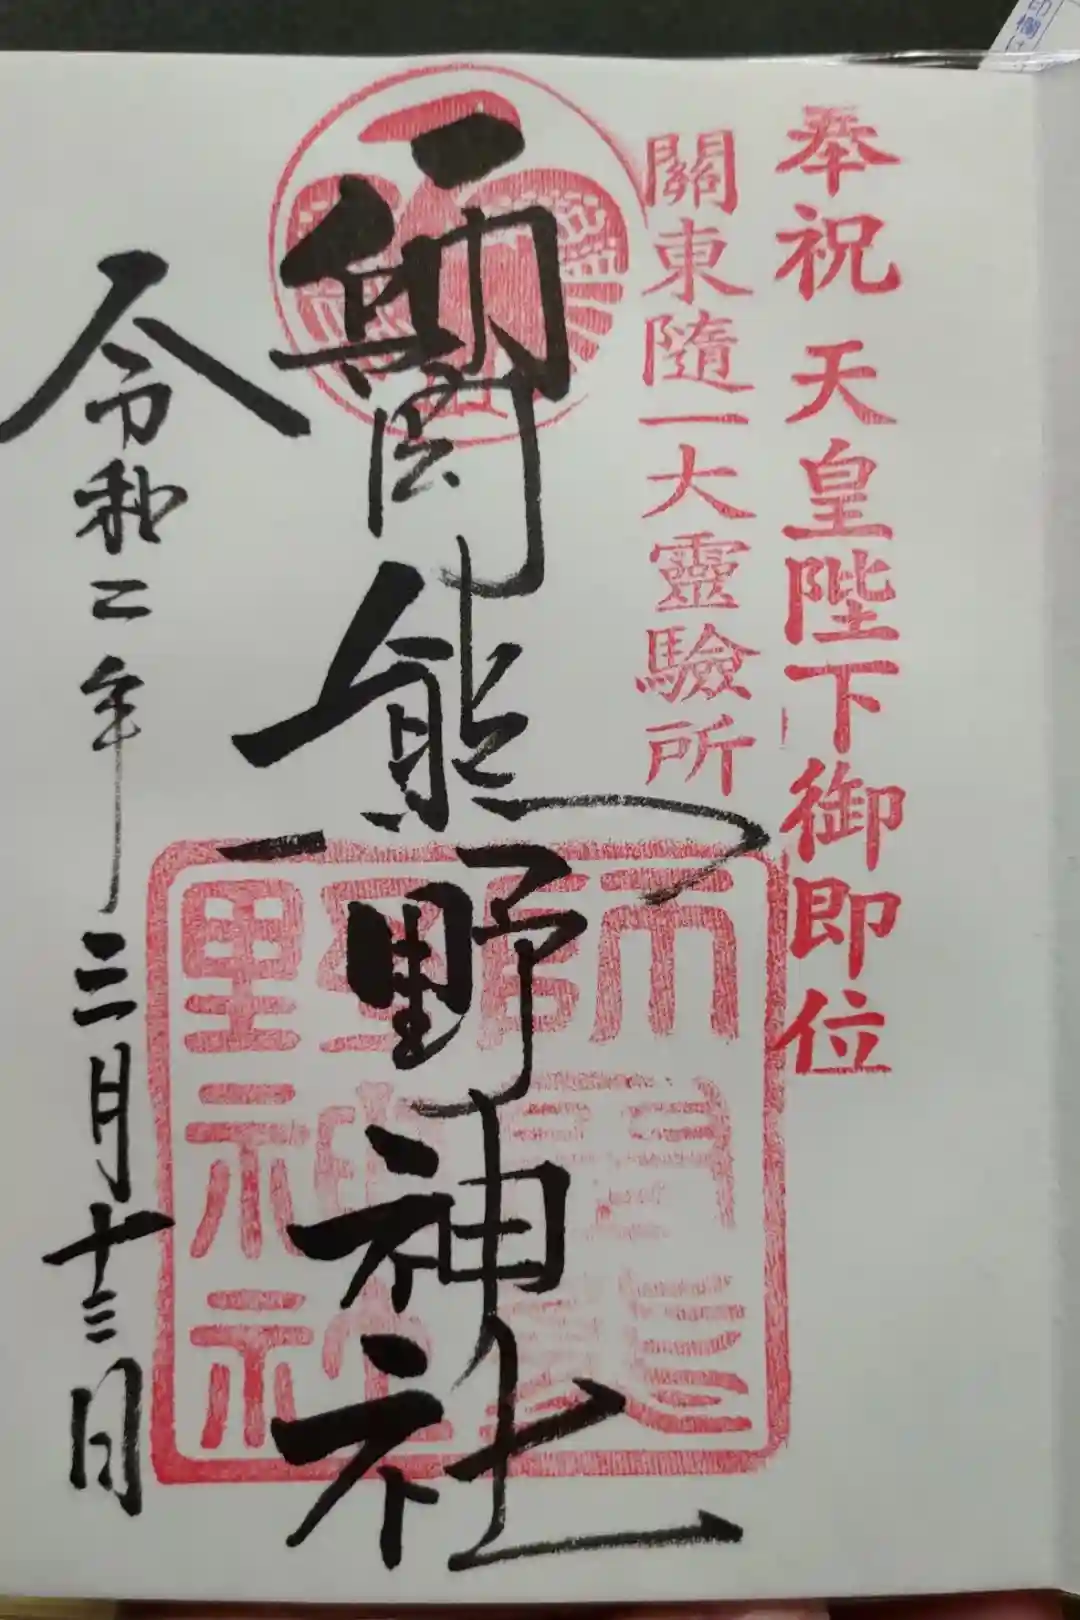 奉祝 天皇陛下御即位
關東隨一大靈驗所
師岡熊野神社
師岡熊野神社
令和二年三月十三日
印欄は